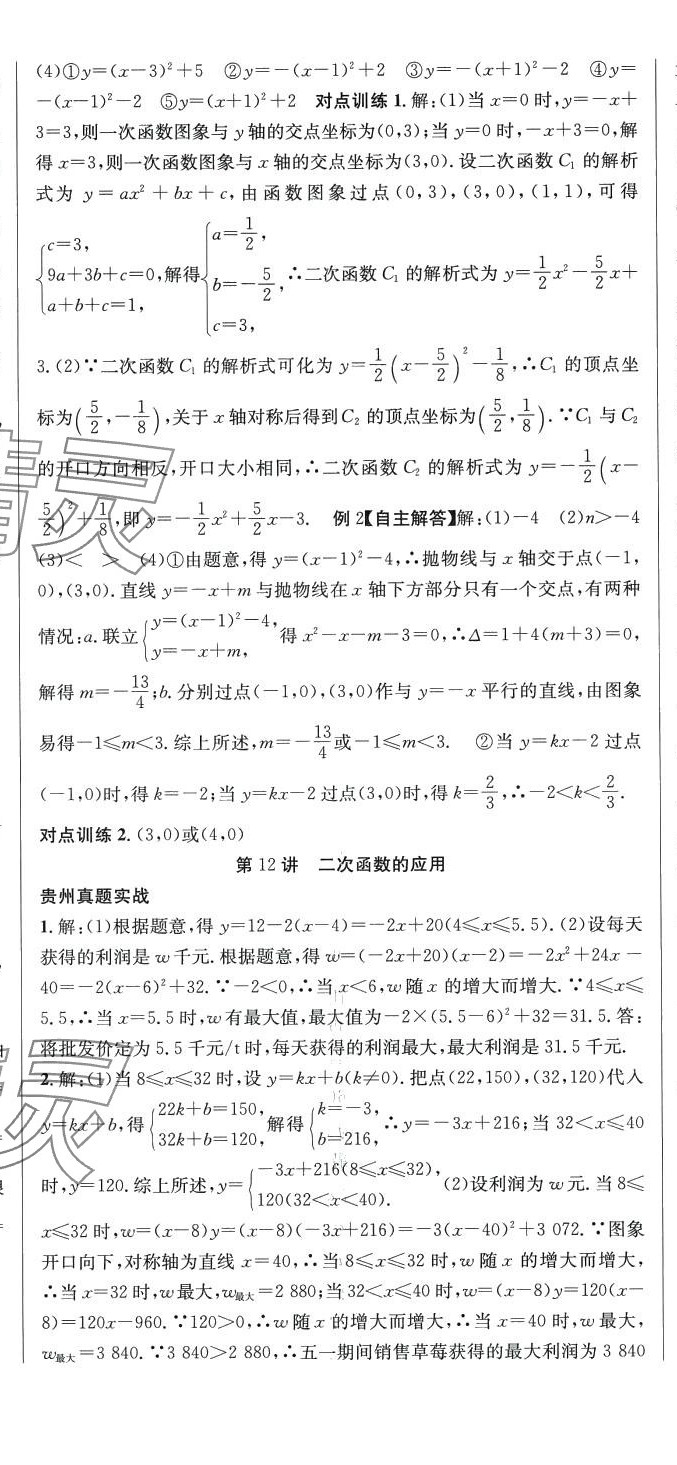 (4)①y=(x-3)²+5 ②y=-(x-1)²+2 ③y=-(x+1)²-2 ④y=
-(x-1)²-2 ⑤y=(x+1)²+2 对点训练1.解:(1)当x=0时,y=-x+
3=3,则一次函数图象与y轴的交点坐标为(0,3);当y=0时,-x+3=0,解
得x=3,则一次函数图象与x轴的交点坐标为(3,0).设二次函数C₁的解析
式为y=ax²+bx+c,由函数图象过点(0,3),(3,0),(1,1),可得
{c=3, 9a+3b+c=0, a+b+c=1, 解得{a=1/2, b=-5/2, c=3, ∴二次函数C₁的解析式为y=1/2x²-5/2x+
3.(2)∵二次函数C₁的解析式可化为y=1/2(x-5/2)²-1/8,∴C₁的顶点坐
标为(5/2,-1/8),关于x轴对称后得到C₂的顶点坐标为(5/2,1/8).∵C₁与C₂
的开口方向相反,开口大小相同,∴二次函数C₂的解析式为y=-1/2(x-
5/2)²+1/8,即y=-1/2x²+5/2x-3. 例2【自主解答】解:(1)-4 (2)n>-4
(3)< > (4)①由题意,得y=(x-1)²-4,∴抛物线与x轴交于点(-1,
0),(3,0).直线y=-x+m与抛物线在x轴下方部分只有一个交点,有两种
情况:a.联立{y=(x-1)²-4, y=-x+m, 得x²-x-m-3=0,∴Δ=1+4(m+3)=0,
解得m=-13/4;b.分别过点(-1,0),(3,0)作与y=-x平行的直线,由图象
易得-1≤m<3.综上所述,m=-13/4或-1≤m<3. ②当y=kx-2过点
(-1,0)时,得k=-2;当y=kx-2过点(3,0)时,得k=2/3,∴-2<k<2/3.
对点训练2.(3,0)或(4,0)
第12讲 二次函数的应用
贵州真题实战
1.解:(1)根据题意,得y=12-2(x-4)=-2x+20(4≤x≤5.5).(2)设每天
获得的利润是w千元.根据题意,得w=(-2x+20)(x-2)=-2x²+24x-
40=-2(x-6)²+32.∵-2<0,∴当x<6,w随x的增大而增大.∵4≤x≤
5.5,∴当x=5.5时,w有最大值,最大值为-2×(5.5-6)²+32=31.5.答:
将批发价定为5.5千元/t时,每天获得的利润最大,最大利润是31.5千元.
2.解:(1)当8≤x≤32时,设y=kx+b(k≠0).把点(22,150),(32,120)代入
y=kx+b,得{22k+b=150, 32k+b=120, 解得{k=-3, b=216, ∴y=-3x+216;当32<x≤40
时,y=120.综上所述,y={-3x+216(8≤x≤32), 120(32<x<40). (2)设利润为w元.当8≤
x≤32时,w=(x-8)y=(x-8)(-3x+216)=-3(x-40)²+3 072.∵图象
开口向下,对称轴为直线x=40,∴当8≤x≤32时,w随x的增大而增大,
∴当x=32时,w最大,w最大=2 880;当32<x≤40时,w=(x-8)y=120(x-
8)=120x-960.∵120>0,∴w随x的增大而增大,∴当x=40时,w最大,
w最大=3 840.∵3 840>2 880,∴五一期间销售草莓获得的最大利润为3 840